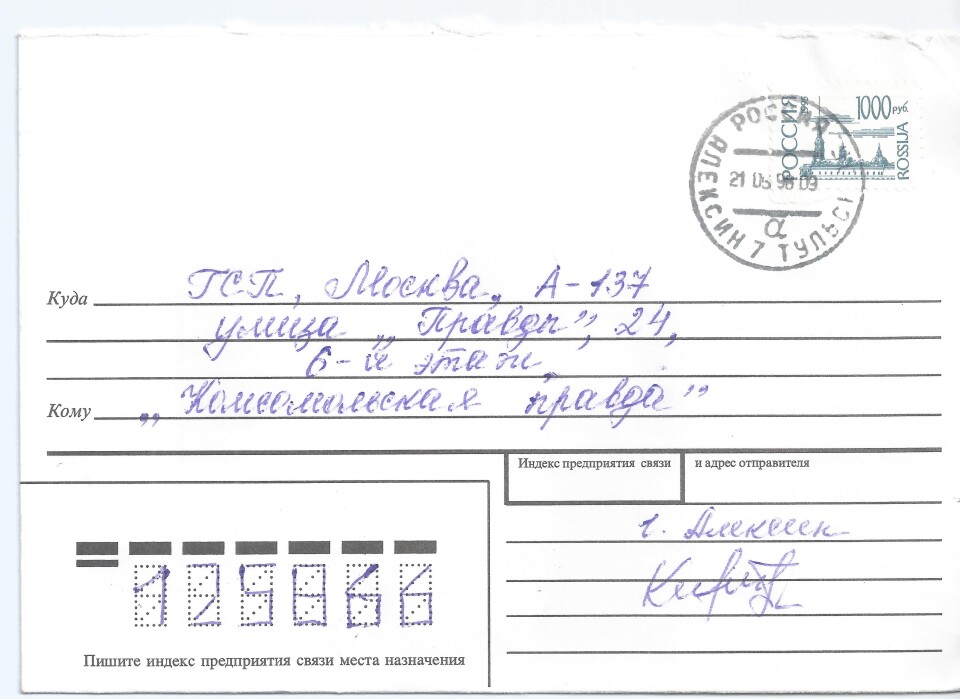 РОССИЯ 1995
1000 руб.
ROSSIJA
РОССИЯ
АЛЕКСИН 7 ТУЛЬС
α
Куда ГСП, Москва, А-137
улица „Правды”, 24,
6-й этаж,
Кому „Комсомольская правда”
Индекс предприятия связи и адрес отправителя
г. Алексин
125866
Пишите индекс предприятия связи места назначения